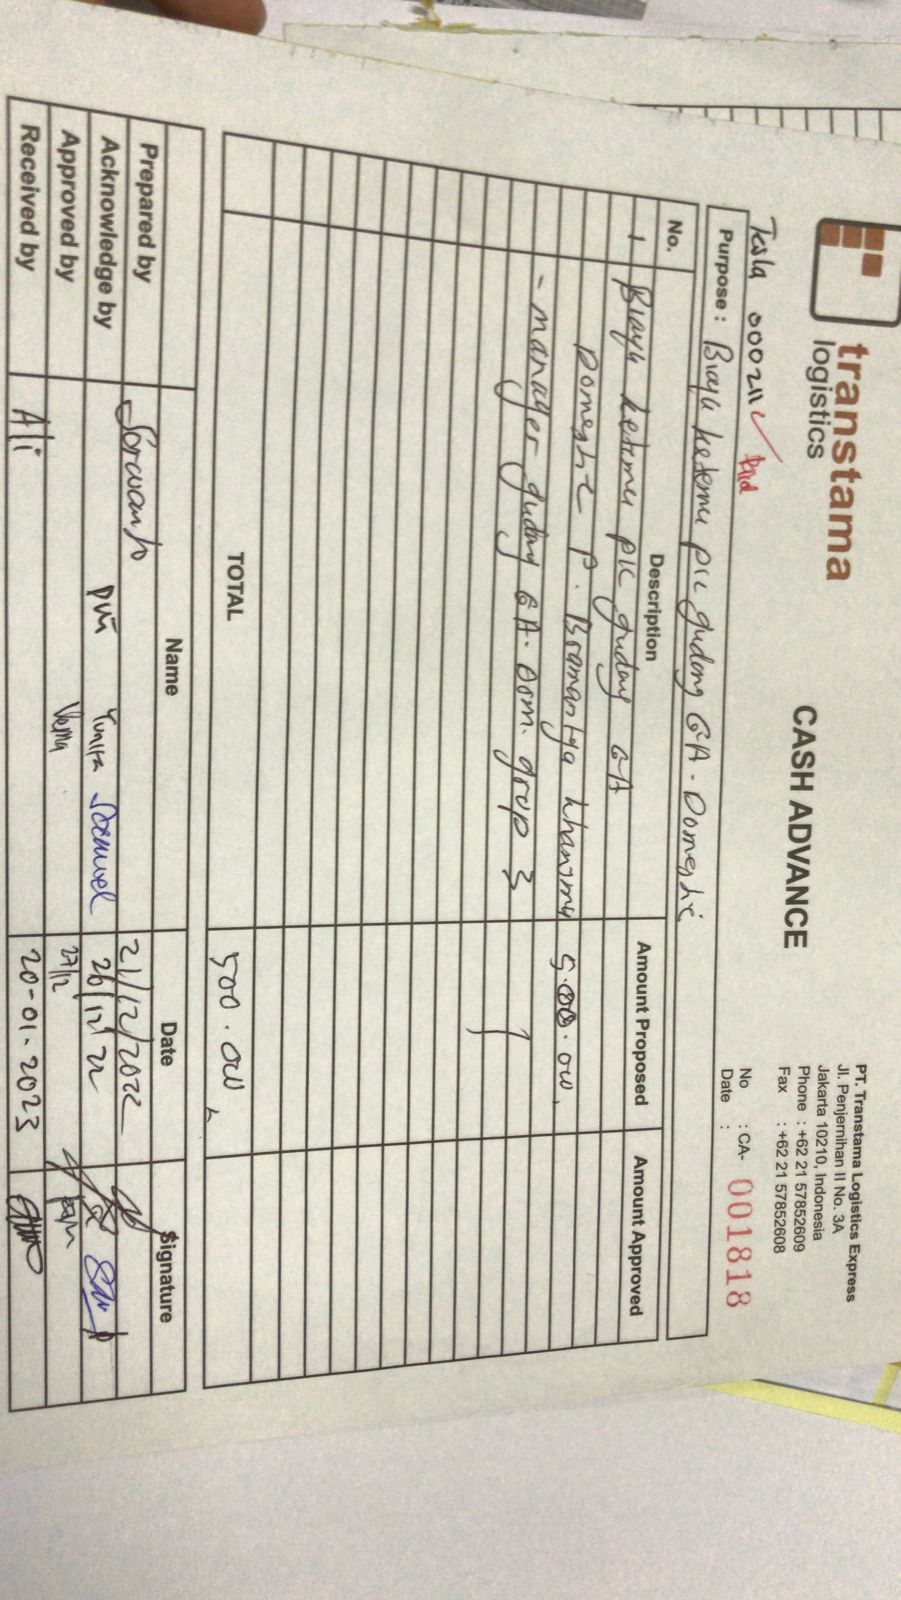 transtama
logistics
CASH ADVANCE
PT. Transtama Logistics Express
Jl. Penjernihan II No. 3A
Jakarta 10210, Indonesia
Phone : +62 21 57852609
Fax : +62 21 57852608
No : CA- 001818
Date :
000211 Paid
Purpose : Biaya ketemu pic gudang GA. Domestic
No. Description Amount Proposed Amount Approved
1 Biaya ketemu pic gudang GA
Domestic P. Bramantya 500.000,
- Manager gudang GA. Dom. grup 3
TOTAL 500.000,
Name Date Signature
Prepared by Sorwanto 21/12/2022
Acknowledge by Yunita Soemuel 26/12/22
Approved by 27/12
Received by Ali 20-01-2023